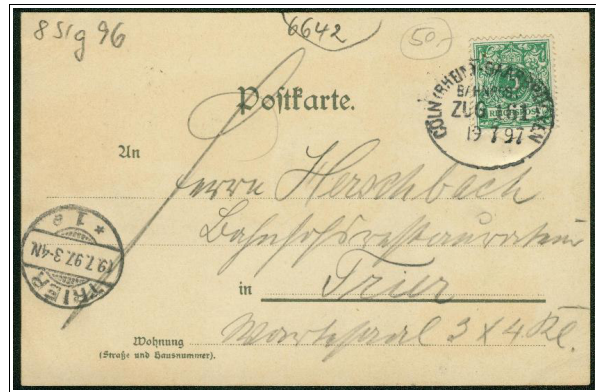 8 Sig 96
6642
50.-
Postkarte.
CÖLN (RHEIN)-SAARBRÜCKEN
BAHNPOST
ZUG 161
19 7 97
An
Herrn Herschbach
Bahnhofsrestaurateur
in Trier
Wartesaal 3 & 4 Kl.
TRIER
19.7.97.3-4N.
* 1 a
Wohnung
(Straße und Hausnummer).